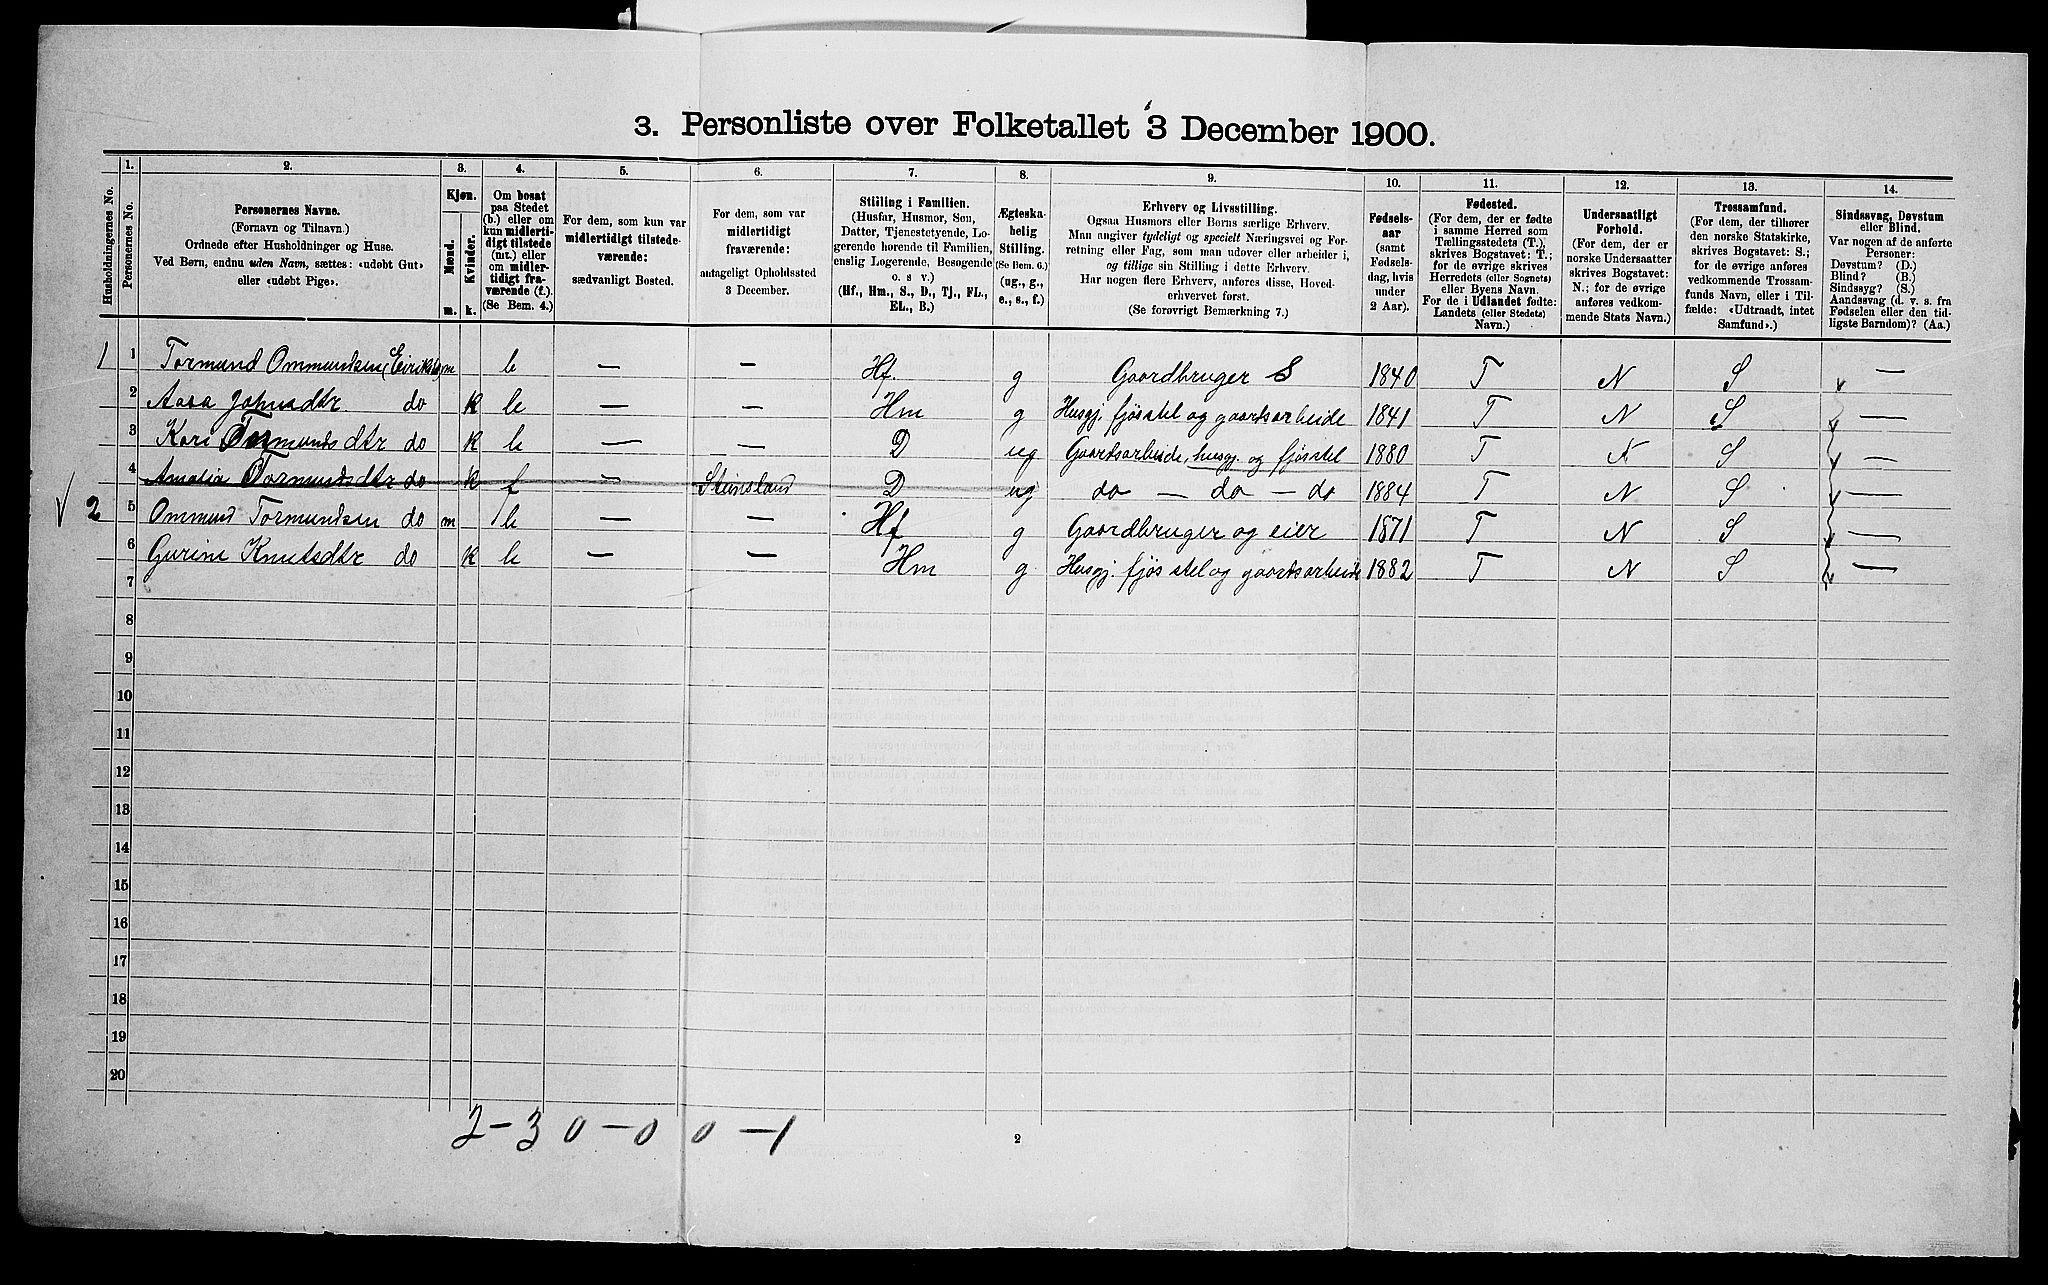 3. Personliste over Folketallet 3 December 1900.
Husholdningernes No.
1.
Personernes No.
2.
Personernes Navne.
(Fornavn og Tilnavn.)
Ordnede efter Husholdninger og Huse.
Ved Børn, endnu uden Navn, sættes: «udøbt Gut»
eller «udøbt Pige».
3.
Kjøn.
Mænd.
Kvinder.
m.
k.
4.
Om bosat
paa Stedet
(b.) eller om
kun midlerti-
digt tilstede
(mt.) eller
om midler-
tidigt fra-
værende (f.).
(Se Bem. 4.)
5.
For dem, som kun var
midlertidigt tilstede-
værende:
sædvanligt Bosted.
6.
For dem, som var
midlertidigt
fraværende:
antageligt Opholdssted
3 December.
7.
Stilling i Familien.
(Husfar, Husmor, Søn,
Datter, Tjenestetyende, Lo-
gerende hørende til Familien,
enslig Logerende, Besøgende
o. s v.)
(Hf., Hm., S., D., Tj., FL.,
EL., B.)
8.
Ægteska-
belig
Stilling.
(Se Bem. 6.)
(ug., g.,
e., s., f.)
9.
Erhverv og Livsstilling.
Ogsaa Husmors eller Børns særlige Erhverv.
Man angiver tydeligt og specielt Næringsvei og For-
retning eller Fag, som man udøver eller arbeider i,
og tillige sin Stilling i dette Erhverv.
Har nogen flere Erhverv, anføres disse, Hoved-
erhvervet først.
(Se forøvrigt Bemærkning 7.)
10.
Fødsels-
aar
(samt
Fødsels-
dag, hvis
under
2 Aar).
11.
Fødested.
(For dem, der er fødte
i samme Herred som
Tællingsstedets (T.),
skrives Bogstavet: T.;
for de øvrige skrives
Herredets (eller Sognets)
eller Byens Navn.
For de i Udlandet fødte:
Landets (eller Stedets)
Navn.)
12.
Undersaatligt
Forhold.
(For dem, der er
norske Undersaatter
skrives Bogstavet:
N.; for de øvrige
anføres vedkom-
mende Stats Navn.)
13.
Trossamfund.
(For dem, der tilhører
den norske Statskirke,
skrives Bogstavet: S.;
for de øvrige anføres
vedkommende Trossam-
funds Navn, eller i Til-
fælde: «Udtraadt, intet
Samfund».)
14.
Sindssvag, Døvstum
eller Blind.
Var nogen af de anførte
Personer:
Døvstum? (D.)
Blind? (B.)
Sindssyg? (S.)
Aandssvag (d. v. s. fra
Fødselen eller den tid-
ligste Barndom)? (Aa.)
1 1 Tormund Ommundsen, m b — — Hf. g Gaardbruger S 1840 T N S —
2 Aasa Johnsdtr do k b — — Hm g Husgj. fjøsstel og gaardsarbeide 1841 T N S —
3 Kari Tormundsdtr do k b — — D ug Gaardsarbeide, husgj. og fjøsstel 1880 T N S —
4 Amalia Tormundsdtr do k f — Steinsland D ug do — do — do 1884 T N S —
2 5 Ommund Tormundsen do m b — — Hf g Gaardbruger og eier 1871 T N S —
6 Gurine Knutsdtr do k b — — Hm g Husgj. fjøsstel og gaardsarbeide 1882 T N S —
7
8
9
10
11
12
13
14
15
16
17
18
19
20
2 – 3 0 – 0 0 – 1
2